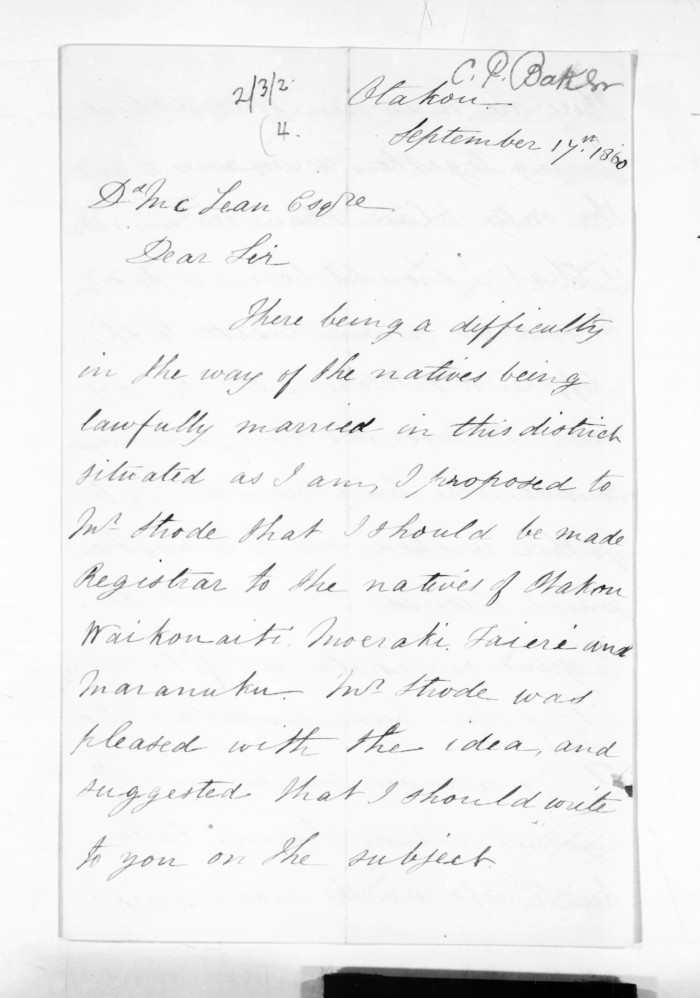 C. P. Baker
2/3/2
4.
Otakou
September 17th. 1860
Dd McLean Esqre
Dear Sir
There being a difficulty
in the way of the natives being
lawfully married in this district
situated as I am, I proposed to
Mr Strode that I should be made
Registrar to the natives of Otakou
Waikouaiti. Moeraki. Taieri and
Maranuku. Mr Strode was
pleased with the idea, and
suggested that I should write
to you on the subject.